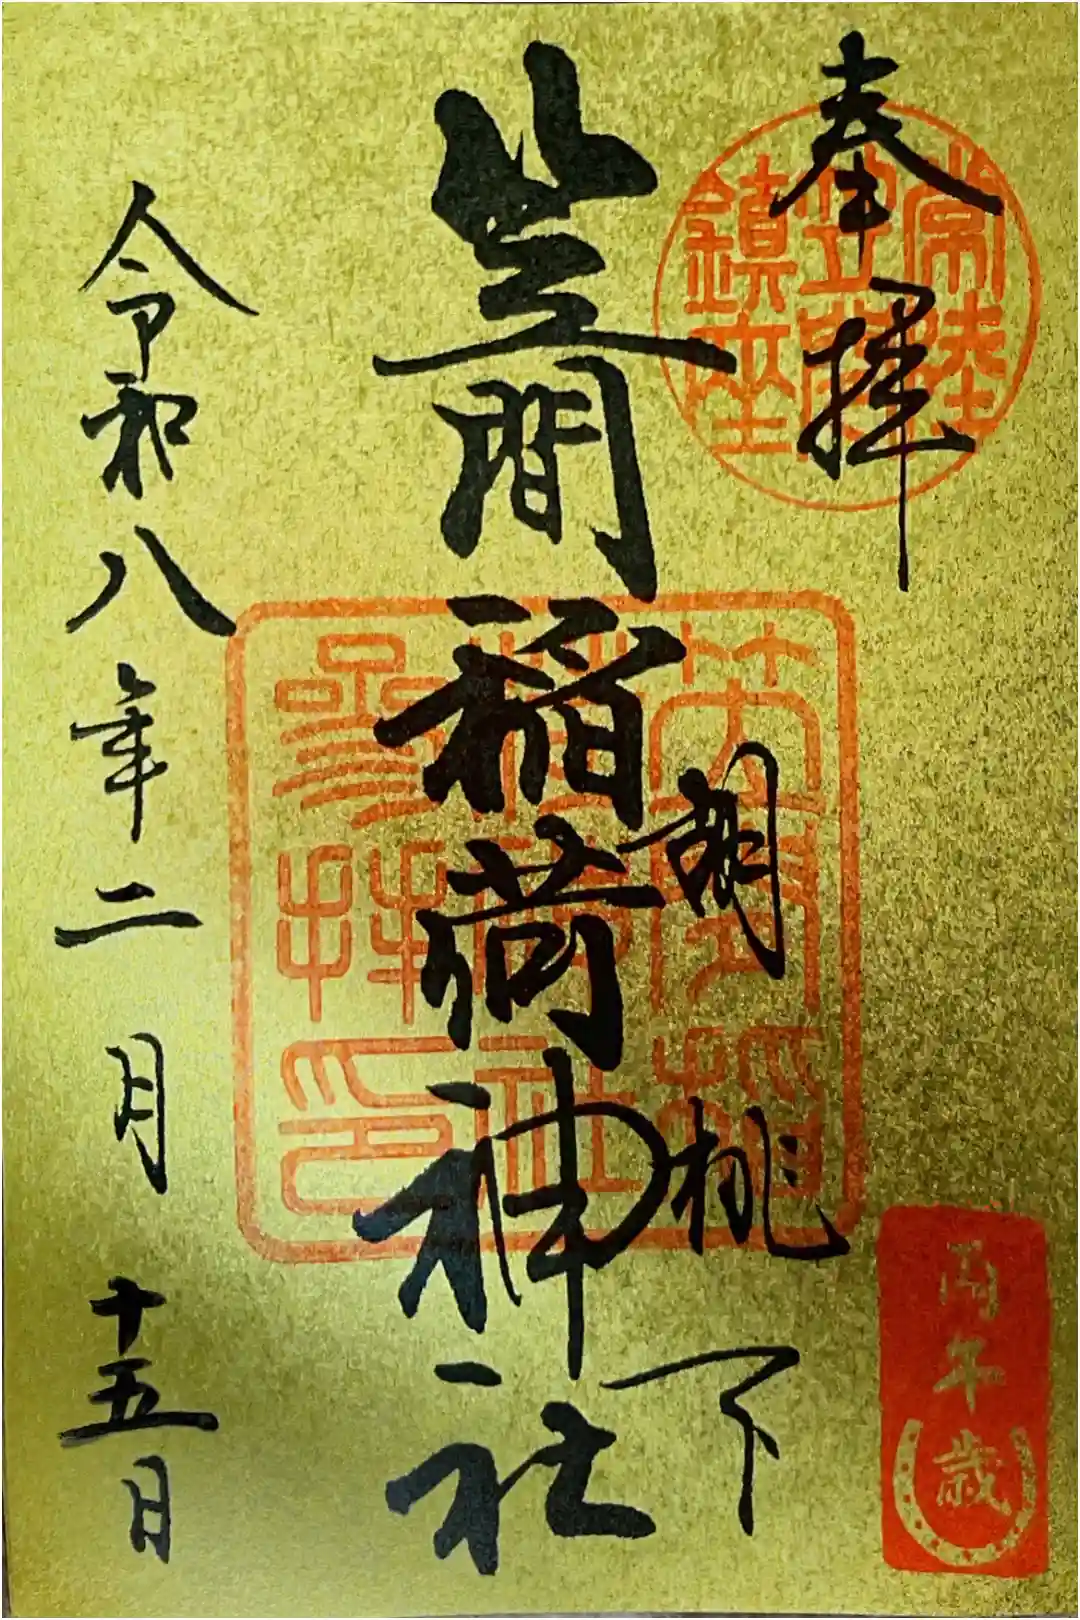 奉拝
常陸
笠間
鎮座
丙午歳
胡桃下
笠間稲荷神社
參拝印
令和八年二月十五日